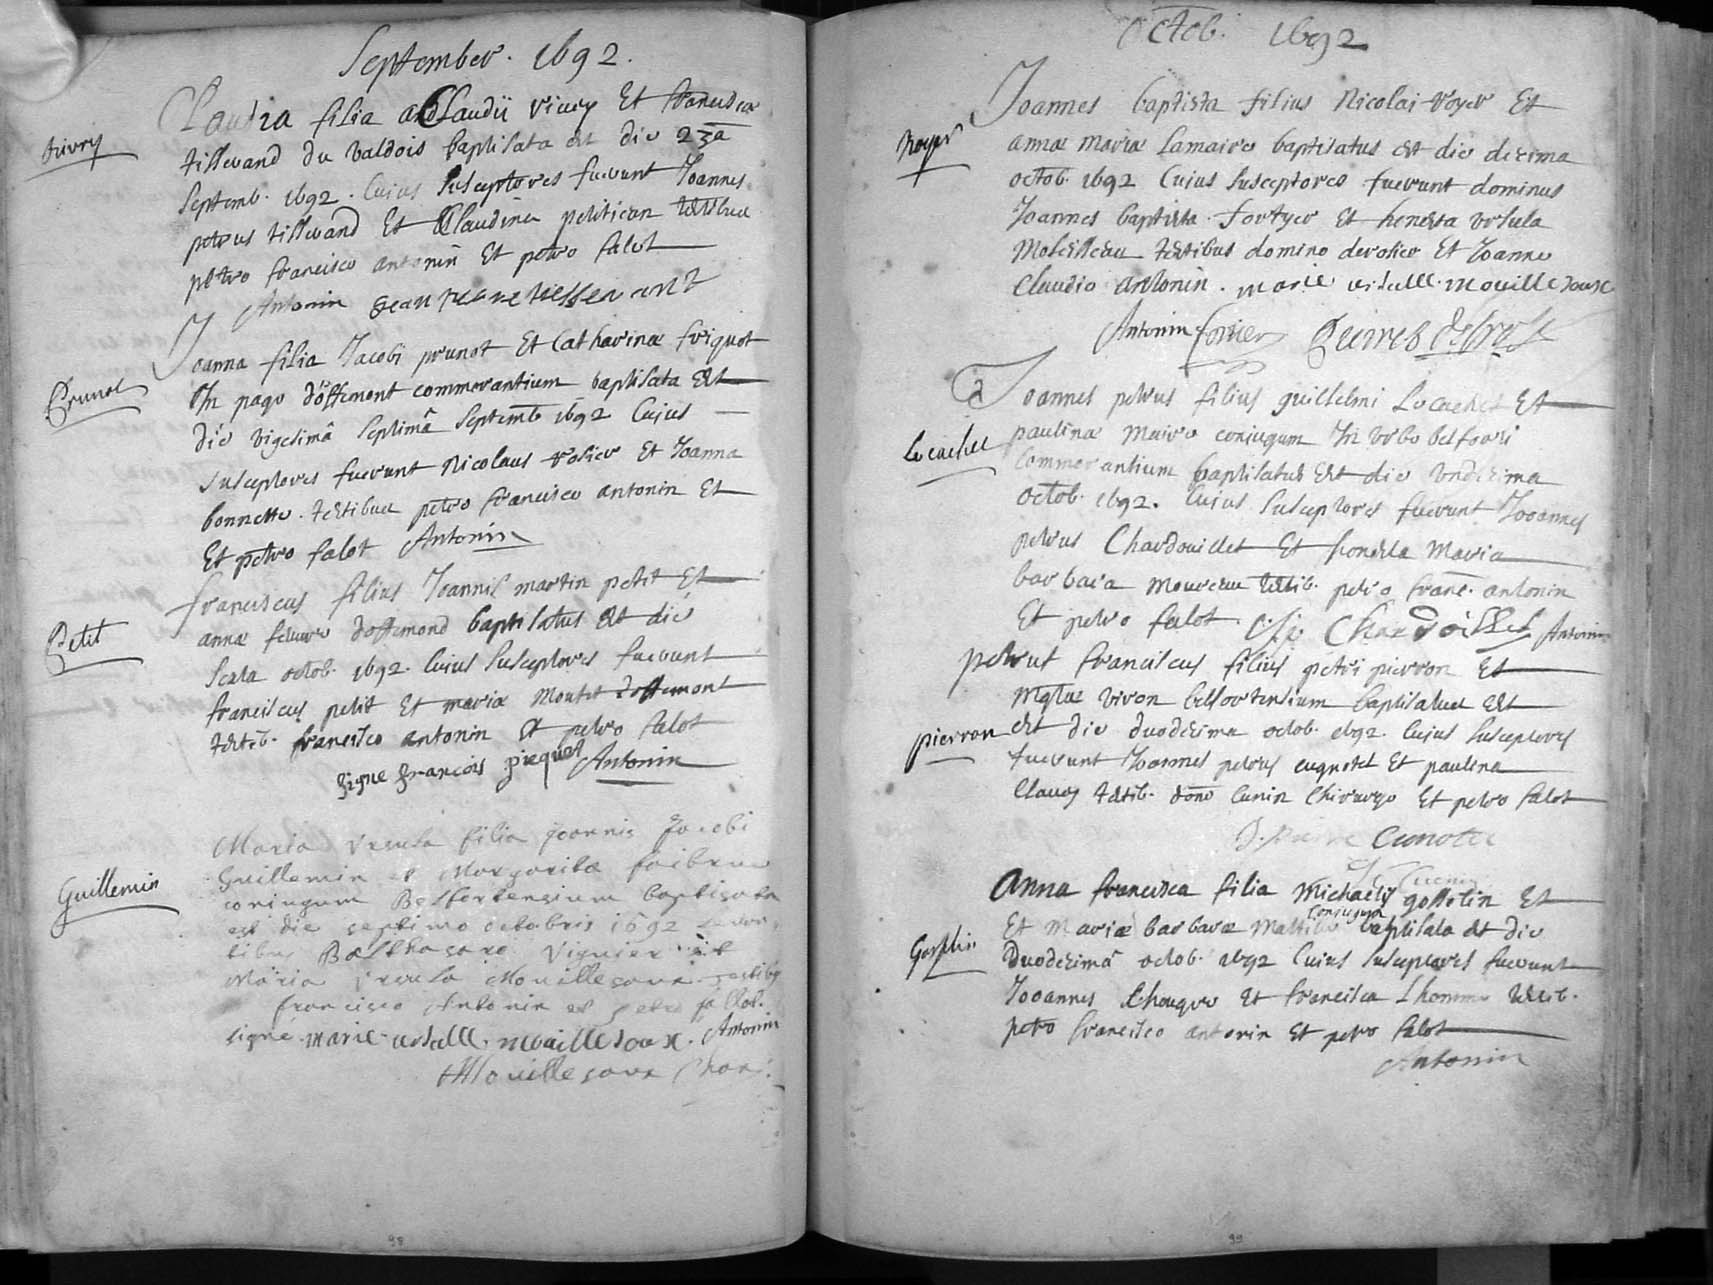 September. 1692.
Claudia filia Claudii viury Et francisca
tisserand du valdois baptisata est die 23a
Septemb. 1692. Cuius Susceptores fuerunt Joannes
petrus tisserand Et Claudina petitican testibus
petro francisco antonin Et petro salot
Antonin
Prunot
Joanna filia Jacobi prunot Et Catharinæ friquot
In pago d'offemont commorantium baptisata Est
die vigesimâ septimâ Septemb 1692 Cujus
susceptores fuerunt Nicolaus rosier Et Joanna
bonnette. testibus petro francisco antonin Et
Et petro salot Antonin
Petit
franciscus filius Joannis martin petit Et
annæ d'offemond baptisatus Est die
Sexta octob. 1692. Cuius Susceptores fuerunt
franciscus petit Et maria Moutet d'offemont
testib. francisco antonin Et petro salot
signe françois piequet Antonin
Guillemin
Maria Ursula filia Joannis Jacobi
Guillemin et Margarita
coniugum Belfortensium baptisata
est die septimo octobris 1692 Levan-
tibus Balthasare Viguier et
Maria Ursula Mouillesaux testibus
francisco Antonin et petro sallot.
signé marie ursulle mouillesoux. Antonin
Mouillesaux
98
Octob. 1692
Royer
Joannes baptista filius Nicolai royer Et
annæ mariæ Lamaire baptisatus Est die decima
octob. 1692 Cuius Susceptores fuerunt dominus
Joannes baptista fortyer Et honesta ursula
testibus domino Et Joanne
Claudio antonin. marie ursulle mouillesoux
Antonin
Lecachet
Joannes petrus filius guillelmi Lecachet Et
paulinæ Maire coniugum In urbe belforti
commorantium baptisatus Est die undecima
octob. 1692. Cuius Susceptores fuerunt Joannes
petrus Chardouillet Et honesta Maria
barbara testib. petro franc. antonin
Et petro salot Chardoillet Antonin
pierron
petrus franciscus filius petri pierron Et
viron belfortensium baptisatus Est
est die duodecima octob. 1692. Cuius Susceptores
fuerunt Joannes petrus cugnotet Et paulina
Clavey testib. dono Cunin Chirurgo Et petro salot
J. pierre Cunotte
Gosselin
Anna francisca filia Michaelis gosselin Et
Et Mariæ barbaræ coniugum baptisata est die
Duodecimâ octob. 1692 Cuius Susceptores fuerunt
Joannes Et francisca Lhomme testib.
petro francisco antonin Et petro salot
Antonin
99